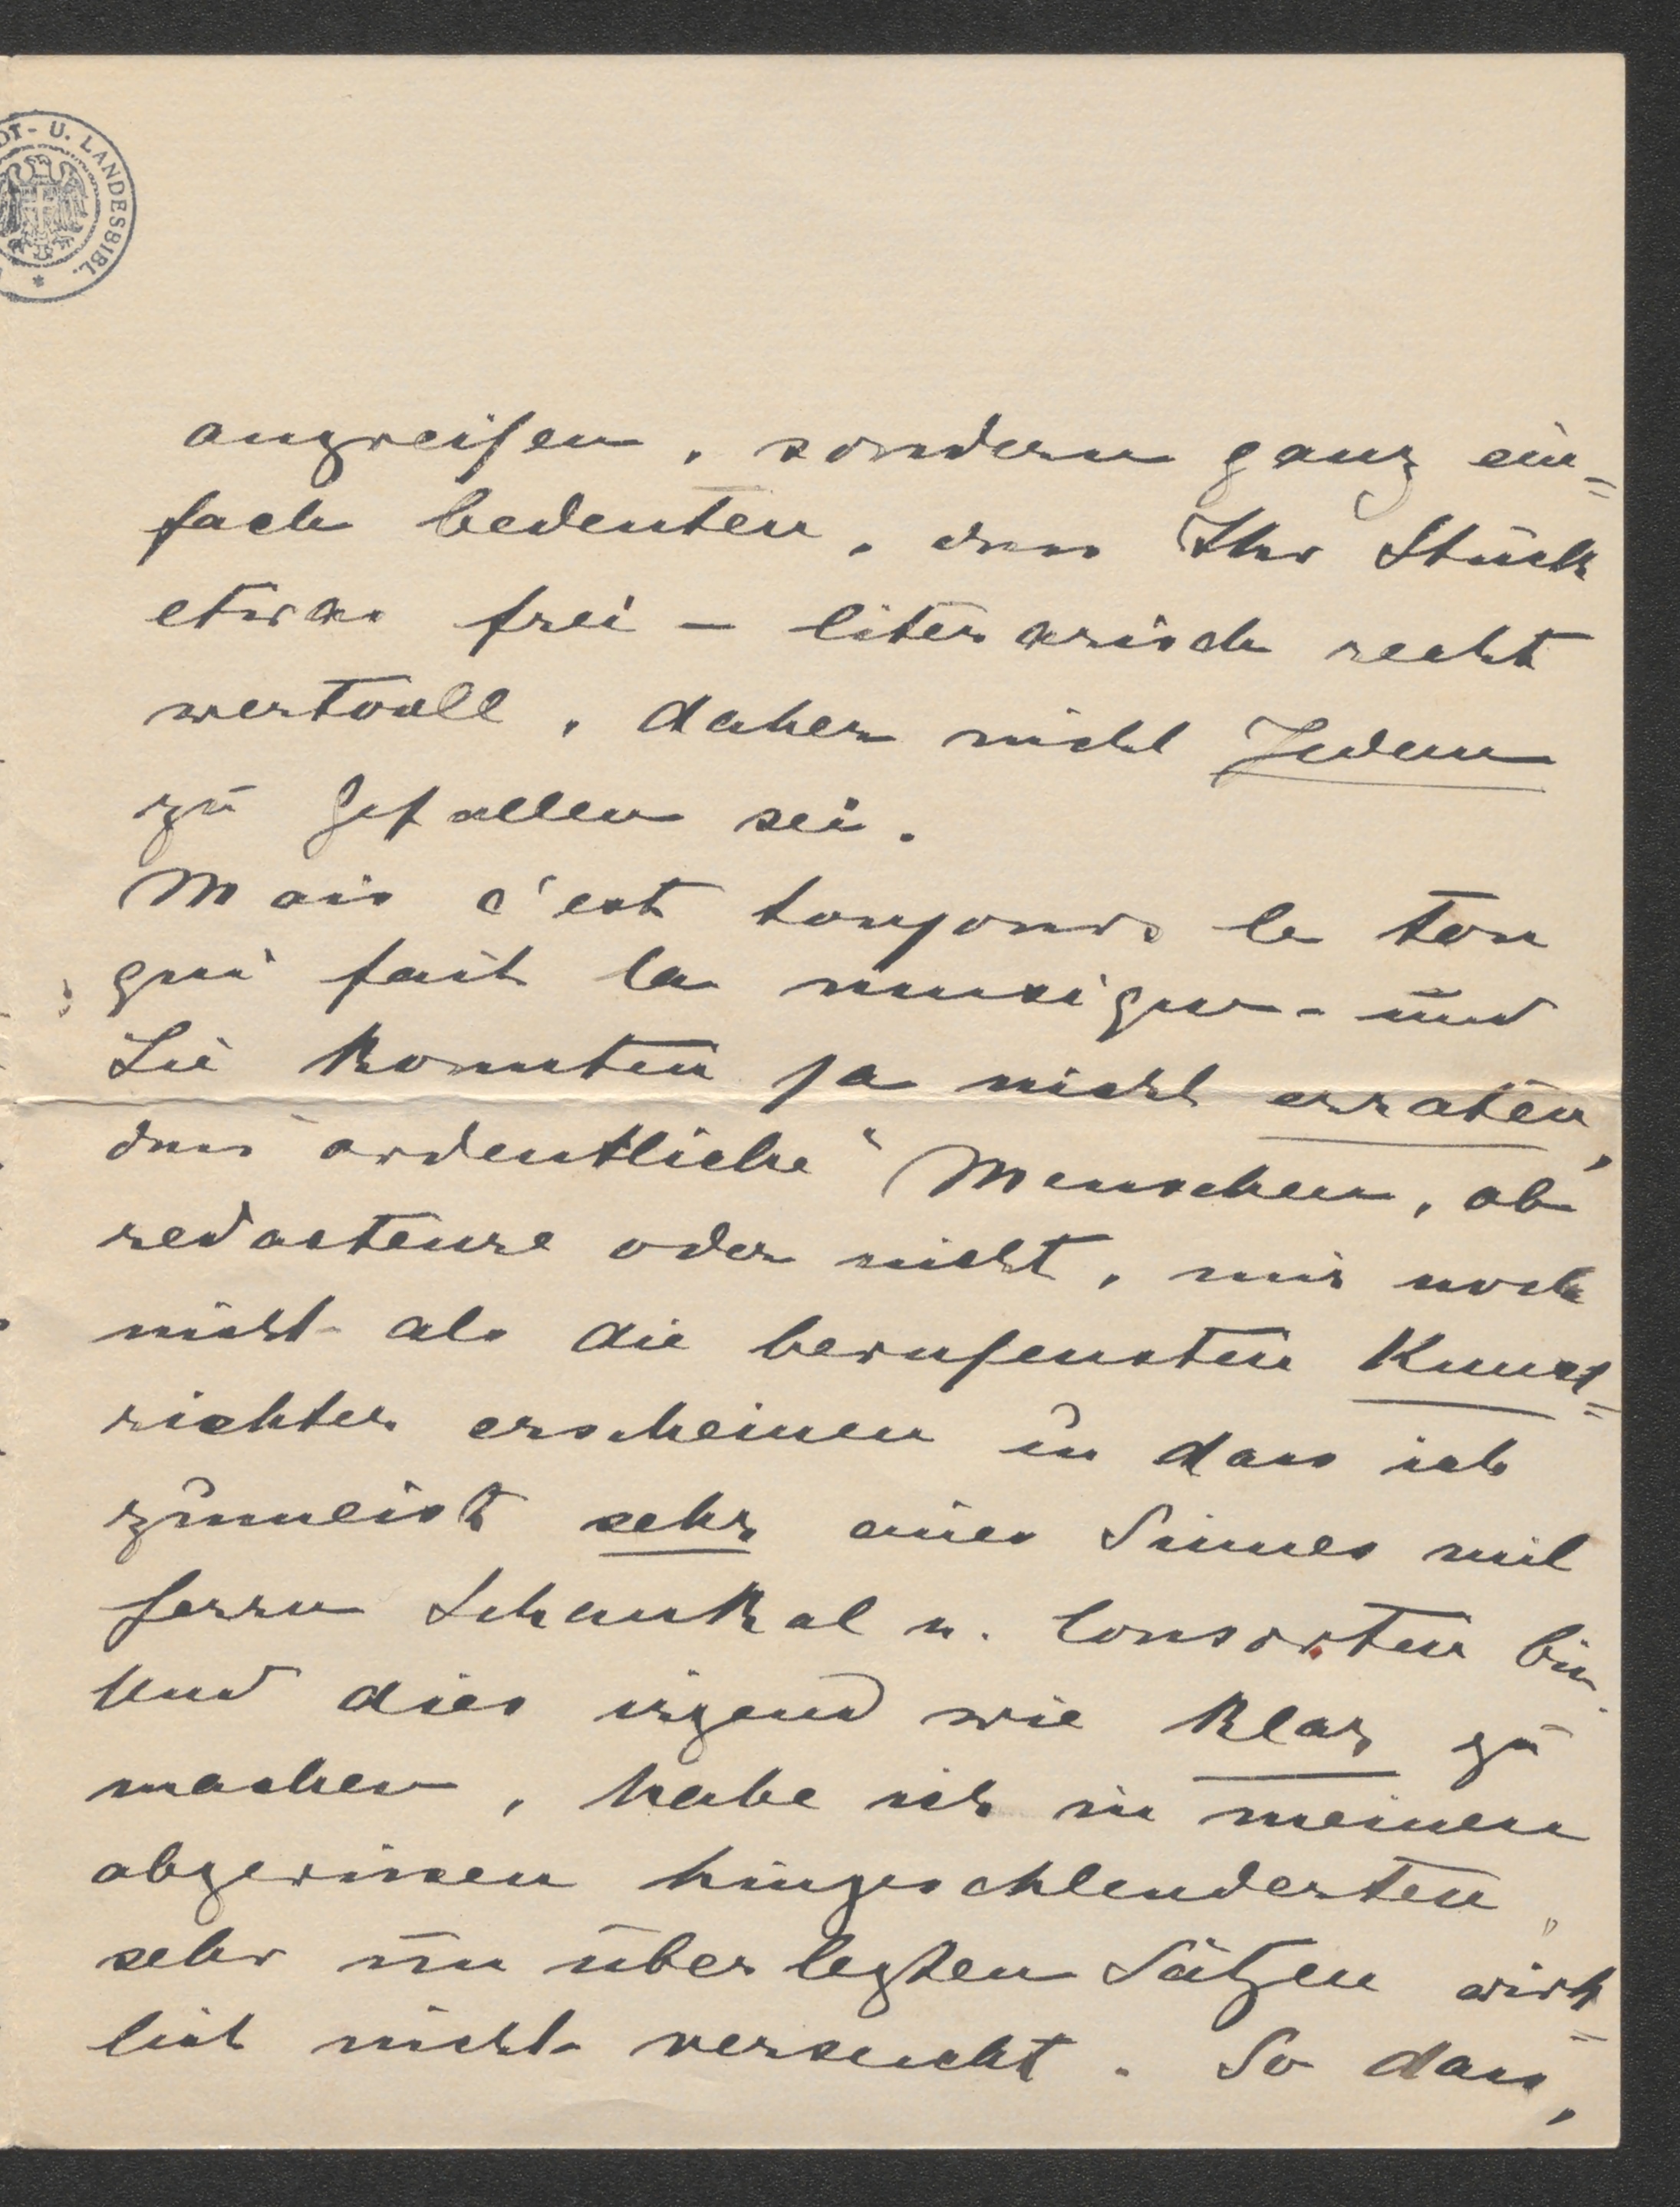 DT- U. LANDESBIBL. *
angreifen, sondern ganz ein=
fach bedeuten, dass Ihr Stück
etwas frei – literarisch recht
wertvoll, daher nicht Jedem
zu Gefallen sei.
Mais c'est toujours le ton
qui fait la musique - und
Sie konnten ja nicht erraten,
dass ordentliche" Menschen, ob
redacteure oder nicht, mir noch
nicht als die berufensten Kunst=
richter erscheinen u dass ich
zumeist sehr eines Sinnes mit
Herrn Schaukal u. Consorten bin.
Und dies irgend wie klar zu
machen, habe ich in meinen
abgerissen hingeschleuderten,
sehr unüberlegten Sätzen wirk=
lich nicht versucht. So dass,